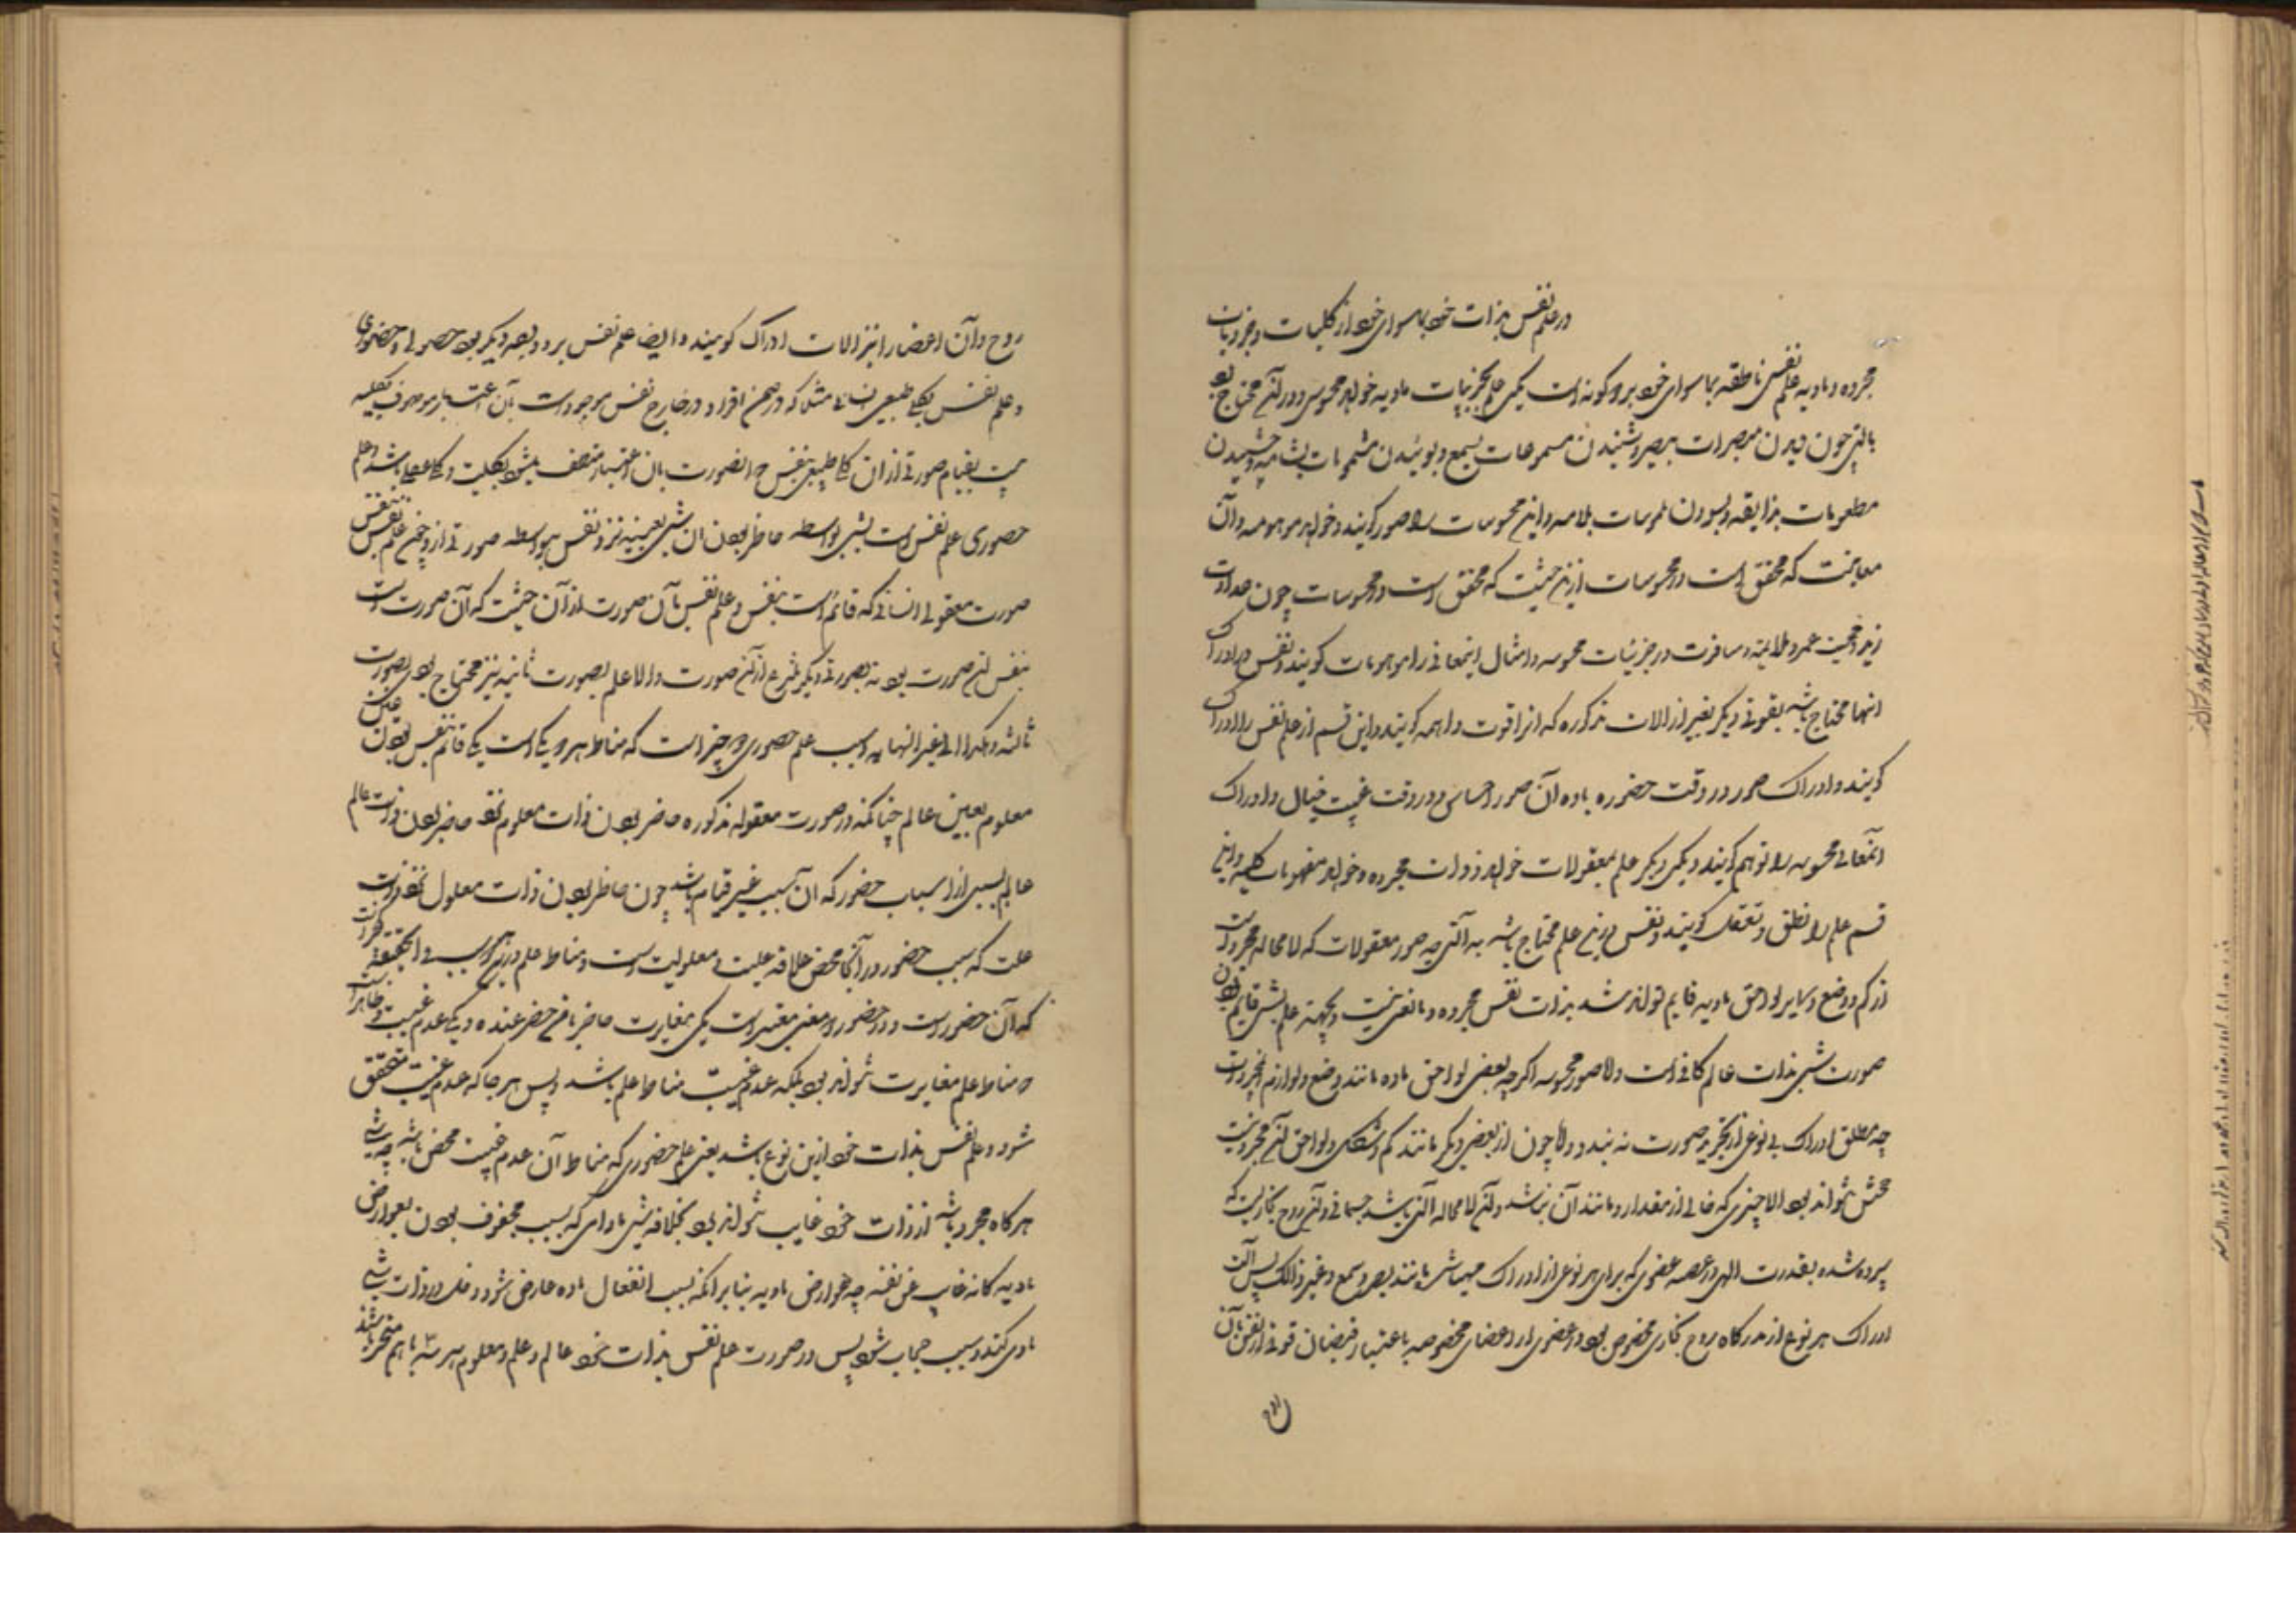 در علم نفس بذات خود بماسوای خود از کلیات و جزویات
مجرده و مادیه علم نفس ناطقه بماسوای خود بر دو گونه است یکی علم بجزئیات مادیه خواه محسوس و در آن محتاج بود
بالتی چون دیدن مبصرات ببصر و شنیدن مسموعات بسمع و بوئیدن مشمومات بشامه و چشیدن
مطعومات بذایقه و بسودن ملموسات بلامسه و این محسوسات را صور گویند و خواه موهومه و آن
معانیست که محقق است در محسوسات ازین حیثیت که محقق است در محسوسات چون عداوت
زید و محبت عمرو و ملایمت و منافرت در جزئیات محسوسه و امثال اینمعانی را موهومات گویند و نفس در ادراک
اینها محتاج باشد بقوتی دیگر بغیر از الات مذکوره که انرا قوت واهمه گویند و این قسم از علم نفس را ادراک
گویند و ادراک صور در وقت حضور ماده آن صور احساس و در وقت غیبت خیال و ادراک
انمعانی محسوسه را توهم گویند و یکی دیگر علم بمعقولات خواه ذوات مجرده و خواه مفهومات کلیه و این
قسم علم را نطق و تعقل گویند و نفس درین علم محتاج باشد به آلتی چه صور معقولات که لامحاله مجرد است
از کم و وضع و سایر لواحق مادیه قایم تواند شد بذات نفس مجرده و مانعی نیست و بجهة علم بشی قایم بودن
صورت شی بذات عالم کافی است و لا صور محسوسه اگرچه بعضی لواحق ماده مانند وضع و لوازم مجرد است
چه مطلق ادراک بی نوعی از تجرید صورت نه بندد و لا چون از بعضی دیگر مانند کم و شکل و لواحق آن مجرد نیست
محلش نتواند بود الا چیزی که خالی از مقدار و مانند آن نباشد و آن لامحاله آلتی باشد جسمانی و آن روح بخاریست که
سپرده شده بقدرت الهی در حصه عضوی که برای هر نوعی از ادراک مهیا شد مانند بصر و سمع و غیر ذالک پس آلت
ادراک هر نوع از مدرکات روح بخاری مخصوص بود در عضوی از اعضای مخصوصه باعتبار فیضان قوتی از نفس بآن
روح و آن اعضا را نیز الات ادراک گویند و ایضا علم نفس بر دو وجه دیگر بود حصولی و حضوری
و علم نفس بکلی طبیعی انسانی مثلا که در ضمن افراد در خارج نفس موجود است بآن اعتبار موصوف بکلیه
نیست بقیام صورتی از ان کلی طبیعی بنفس و انصورت بان اعتبار متصف میشود بکلیت و کلی عقلی باشد و علم
حصوری علم نفس است بشی بواسطه حاضر بودن ان شی بعینه نزد نفس نه بواسطه صورتی از و چون علم نفس بنفس
صورت معقوله انسانی که قائم است بنفس و علم نفس بآن صورت از آن حیثیت که آن صورت است
بنفس ان صورت بود نه بصورتی دیگر منتزع از ان صورت و الا علم بصورت ثانیه نیز محتاج بود بصورت
ثالثه و هکذا الی غیر النهایه و سبب علم حضوری دو چیز است که مناط هر دو یکی است یکی قائم بنفس بودن عین
معلوم بعین عالم چنانکه در صورت معقوله مذکوره حاضر بودن ذات معلوم نزد حاضر بودن ذات عالم
عالم بسببی از اسباب حضور که ان سبب غیر قیام باشد چون حاضر بودن ذات معلول نزد ذات
علت که سبب حضور در آنجا محض علاقه علیت و معلولیت است و مناط علم درین هر دو سبب فی الحقیقة یکی است
که آن حضور است و در حضور دو معنی معتبر است یکی مغایرت حاضر با من حضر عنده و یکی عدم غیبت و ظاهرا
در مناط علم مغایرت نتواند بود بلکه عدم غیبت مناط علم باشد و پس هر جا که عدم غیبت متحقق
شود و علم نفس بذات خود ازین نوع باشد یعنی علم حضوری که مناط آن عدم غیبت محض باشد چه شی
هرگاه مجرد باشد از ذات خود غایب نتواند بود بخلاف شی مادی که بسبب محفوف بودن بعوارض
مادیه کانه غایب عن نفسه چه عوارض مادیه بنا بر انکه بسبب انفعال ماده عارض شود دخل در ذات شی
مادی کند و سبب حجاب شود پس در صورت علم نفس بذات خود عالم و علم و معلوم هر سه با هم متحد باشند